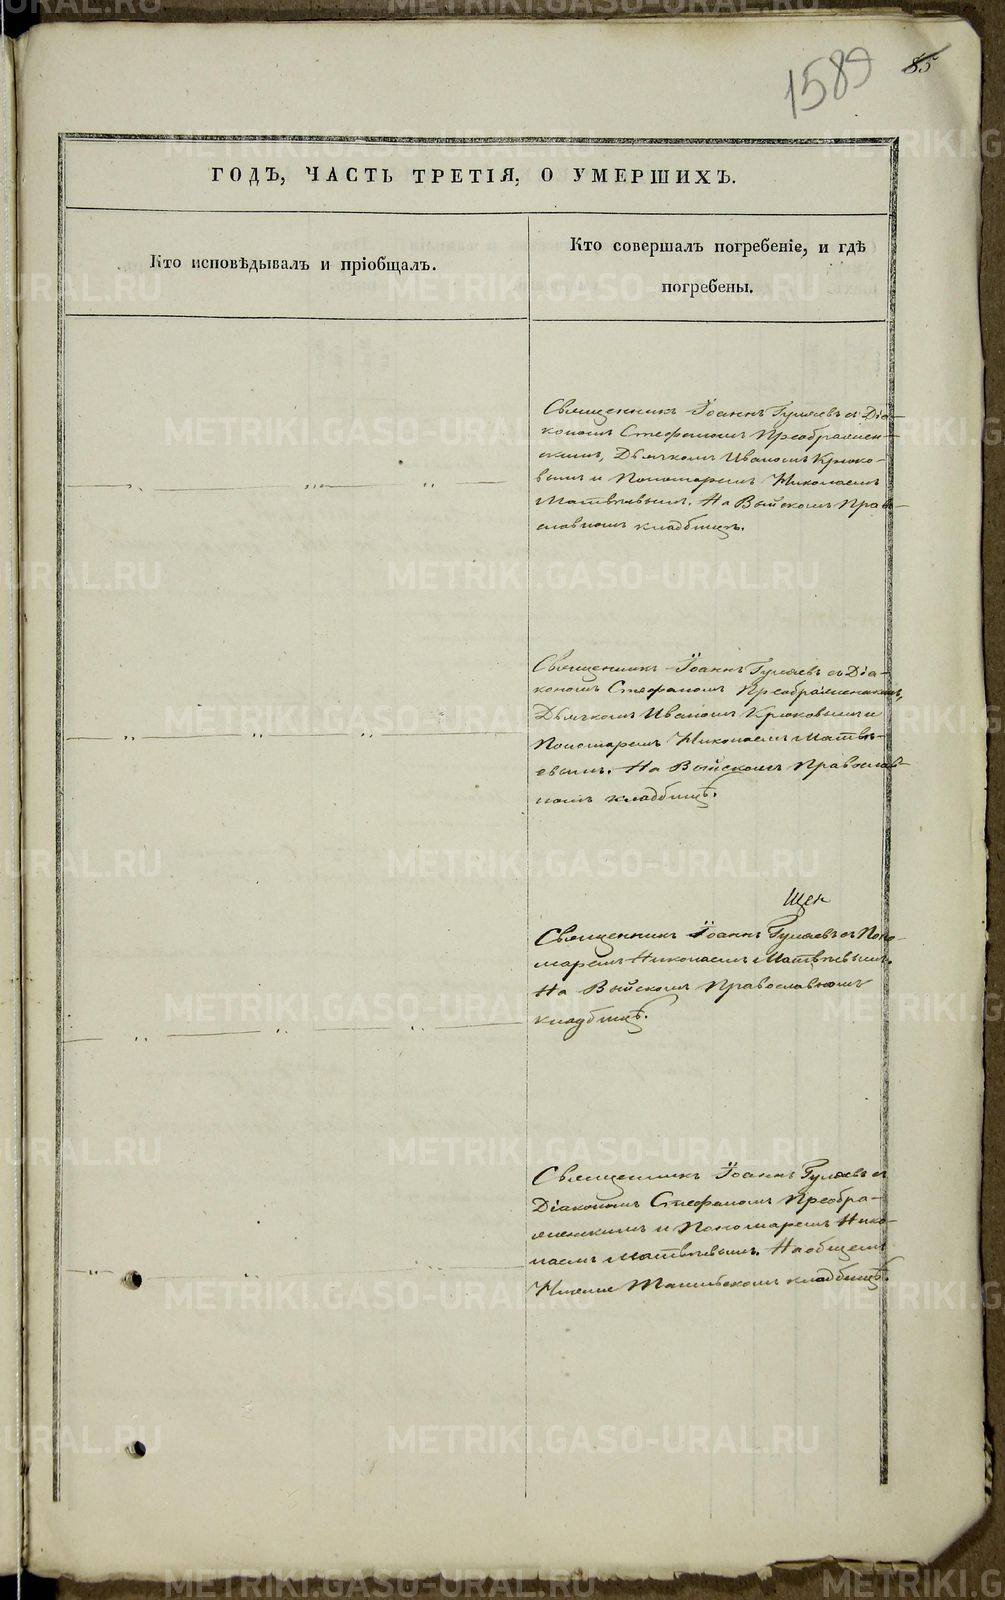 1589 85
ГОДЪ, ЧАСТЬ ТРЕТІЯ, О УМЕРШИХЪ.
Кто исповѣдывалъ и пріобщалъ.
Кто совершалъ погребеніе, и гдѣ
погребены.
Священникъ Іоаннъ Гуляевъ съ Діа-
кономъ Стефаномъ Преображен-
скимъ, Дьячкомъ Иваномъ Крюко-
вымъ и Пономаремъ Николаемъ
Матвѣевымъ. На Выйскомъ Право-
славномъ кладбищѣ.
Священникъ Іоаннъ Гуляевъ съ Діа-
кономъ Стефаномъ Преображенскимъ,
Дьячкомъ Иваномъ Крюковымъ и
Пономаремъ Николаемъ Матвѣ-
евымъ. На Выйскомъ Православ-
номъ кладбищѣ.
Священникъ Іоаннъ Гуляевъ съ Поно-
маремъ Николаемъ Матвѣевымъ.
На Выйскомъ Православномъ
кладбищѣ.
Священникъ Іоаннъ Гуляевъ съ
Діакономъ Стефаномъ Преобра-
женскимъ и Пономаремъ Нико-
лаемъ Матвѣевымъ. На общемъ
Нижне Тагильскомъ кладбищѣ.
METRIKI.GASO-URAL.RU